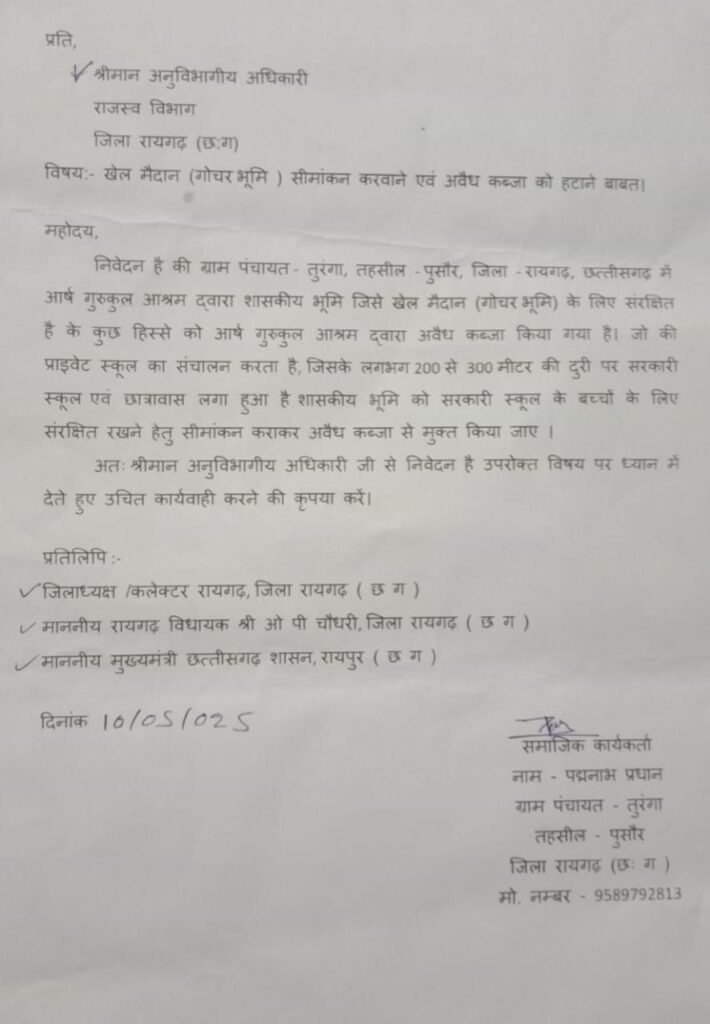 प्रति,
श्रीमान अनुविभागीय अधिकारी
राजस्व विभाग
जिला रायगढ़ (छ:ग)
विषय:- खेल मैदान (गोचर भूमि ) सीमांकन करवाने एवं अवैध कब्जा को हटाने बाबत।
महोदय,
निवेदन है की ग्राम पंचायत - तुरंगा, तहसील -पुसौर, जिला - रायगढ़, छत्तीसगढ़ में
आर्ष गुरुकुल आश्रम द्वारा शासकीय भूमि जिसे खेल मैदान (गोचर भूमि) के लिए संरक्षित
है के कुछ हिस्से को आर्ष गुरुकुल आश्रम द्वारा अवैध कब्जा किया गया है। जो की
प्राइवेट स्कूल का संचालन करता है, जिसके लगभग 200 से 300 मीटर की दुरी पर सरकारी
स्कूल एवं छात्रावास लगा हुआ है शासकीय भूमि को सरकारी स्कूल के बच्चों के लिए
संरक्षित रखने हेतु सीमांकन कराकर अवैध कब्जा से मुक्त किया जाए ।
अतः श्रीमान अनुविभागीय अधिकारी जी से निवेदन है उपरोक्त विषय पर ध्यान में
देते हुए उचित कार्यवाही करने की कृपया करें।
प्रतिलिपि :-
जिलाध्यक्ष /कलेक्टर रायगढ़, जिला रायगढ़ ( छ ग )
माननीय रायगढ़ विधायक श्री ओ पी चौधरी, जिला रायगढ़ ( छ ग )
माननीय मुख्यमंत्री छत्तीसगढ़ शासन, रायपुर ( छ ग )
दिनांक 10/05/025
समाजिक कार्यकर्ता
नाम - पद्मनाभ प्रधान
ग्राम पंचायत - तुरंगा
तहसील - पुसौर
जिला रायगढ़ (छः ग )
मो. नम्बर - 9589792813